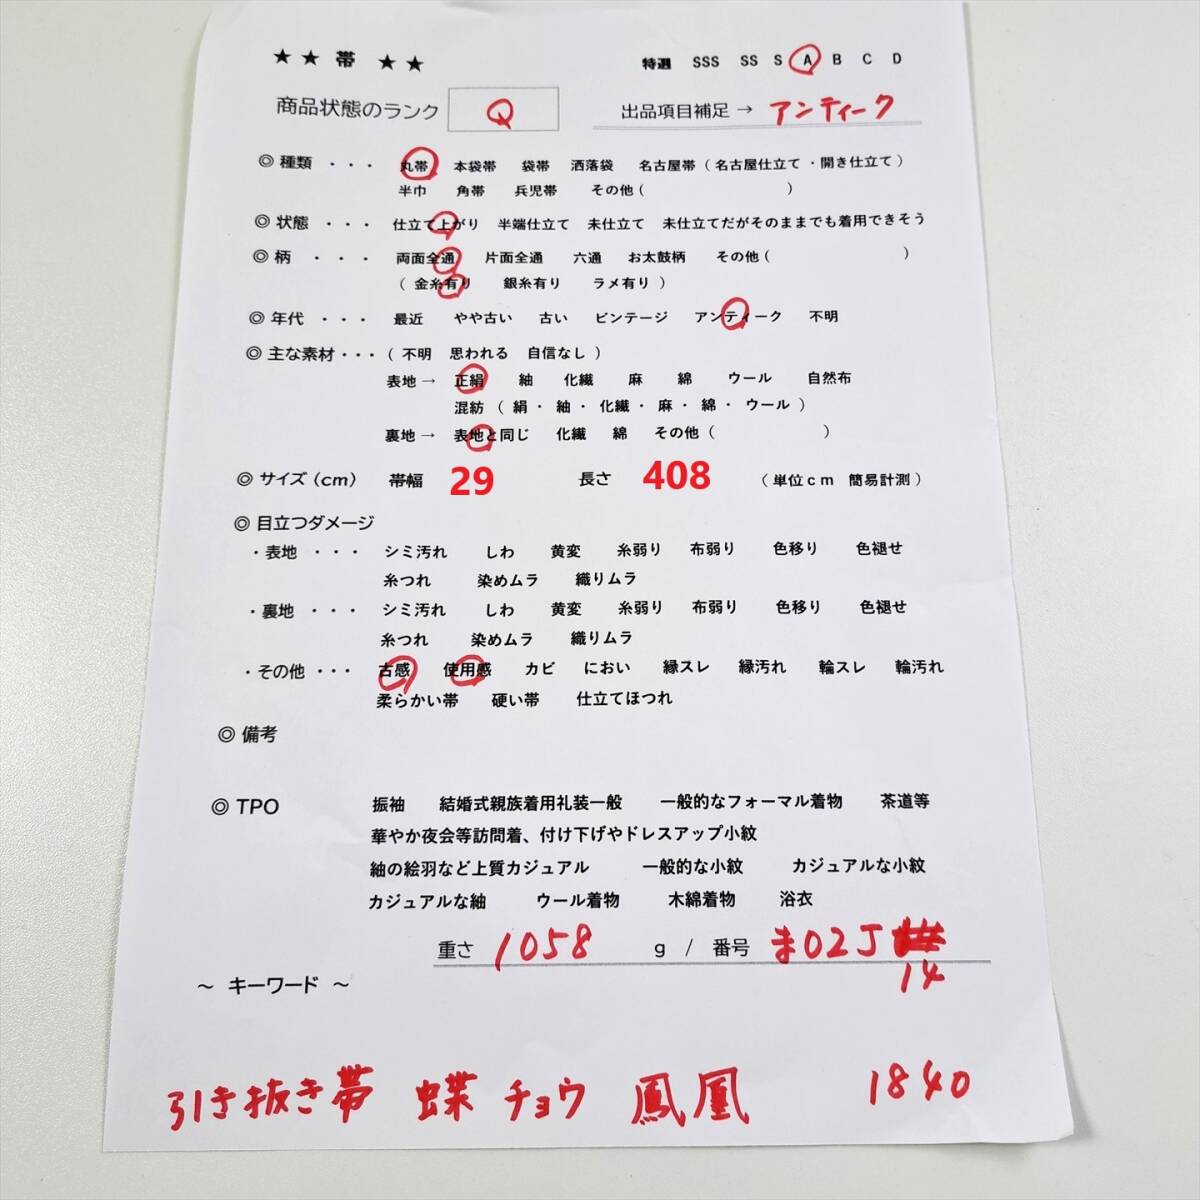 ★ ★ 帯 ★ ★ 特選 SSS SS S A B C D
商品状態のランク Q 出品項目補足 → アンティーク
◎ 種類 ・・・ 丸帯 本袋帯 袋帯 洒落袋 名古屋帯 ( 名古屋仕立て ・開き仕立て )
半巾 角帯 兵児帯 その他 ( )
◎ 状態 ・・・ 仕立て上がり 半端仕立て 未仕立て 未仕立てだがそのままでも着用できそう
◎ 柄 ・・・ 両面全通 片面全通 六通 お太鼓柄 その他 ( )
( 金糸有り 銀糸有り ラメ有り )
◎ 年代 ・・・ 最近 やや古い 古い ビンテージ アンティーク 不明
◎ 主な素材・・・ ( 不明 思われる 自信なし )
表地 → 正絹 紬 化繊 麻 綿 ウール 自然布
混紡 ( 絹・紬・化繊・麻・綿・ウール )
裏地 → 表地と同じ 化繊 綿 その他 ( )
◎ サイズ (cm) 帯幅 29 長さ 408 ( 単位cm 簡易計測 )
◎ 目立つダメージ
・表地 ・・・ シミ汚れ しわ 黄変 糸弱り 布弱り 色移り 色褪せ
糸つれ 染めムラ 織りムラ
・裏地 ・・・ シミ汚れ しわ 黄変 糸弱り 布弱り 色移り 色褪せ
糸つれ 染めムラ 織りムラ
・その他 ・・・ 古感 使用感 カビ におい 縁スレ 縁汚れ 輪スレ 輪汚れ
柔らかい帯 硬い帯 仕立てほつれ
◎ 備考
◎ TPO 振袖 結婚式親族着用礼装一般 一般的なフォーマル着物 茶道等
華やか夜会等訪問着、付け下げやドレスアップ小紋
紬の絵羽など上質カジュアル 一般的な小紋 カジュアルな小紋
カジュアルな紬 ウール着物 木綿着物 浴衣
重さ 1058 g / 番号 ま02J
14
～ キーワード ～
引き抜き帯 蝶 チョウ 鳳凰 1840